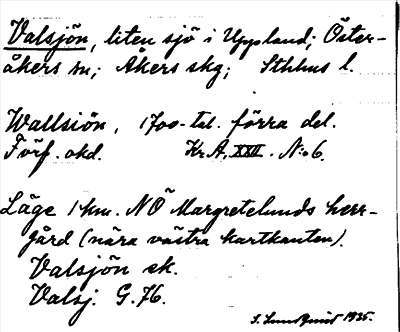 Valsjön, liten sjö i Uppland; Öster-
åkers sn; Åkers skg; Sthlms l.
Wallsiön, 1700-tal. förra del.
Förf. okd. Kr.A, XXII. N:o 6.
Läge 1 km. NÖ Margretelunds herr-
gård (nära västra kartkanten).
Valsjön ek.
Valsj. G.76.
S. Lundquist 1935.